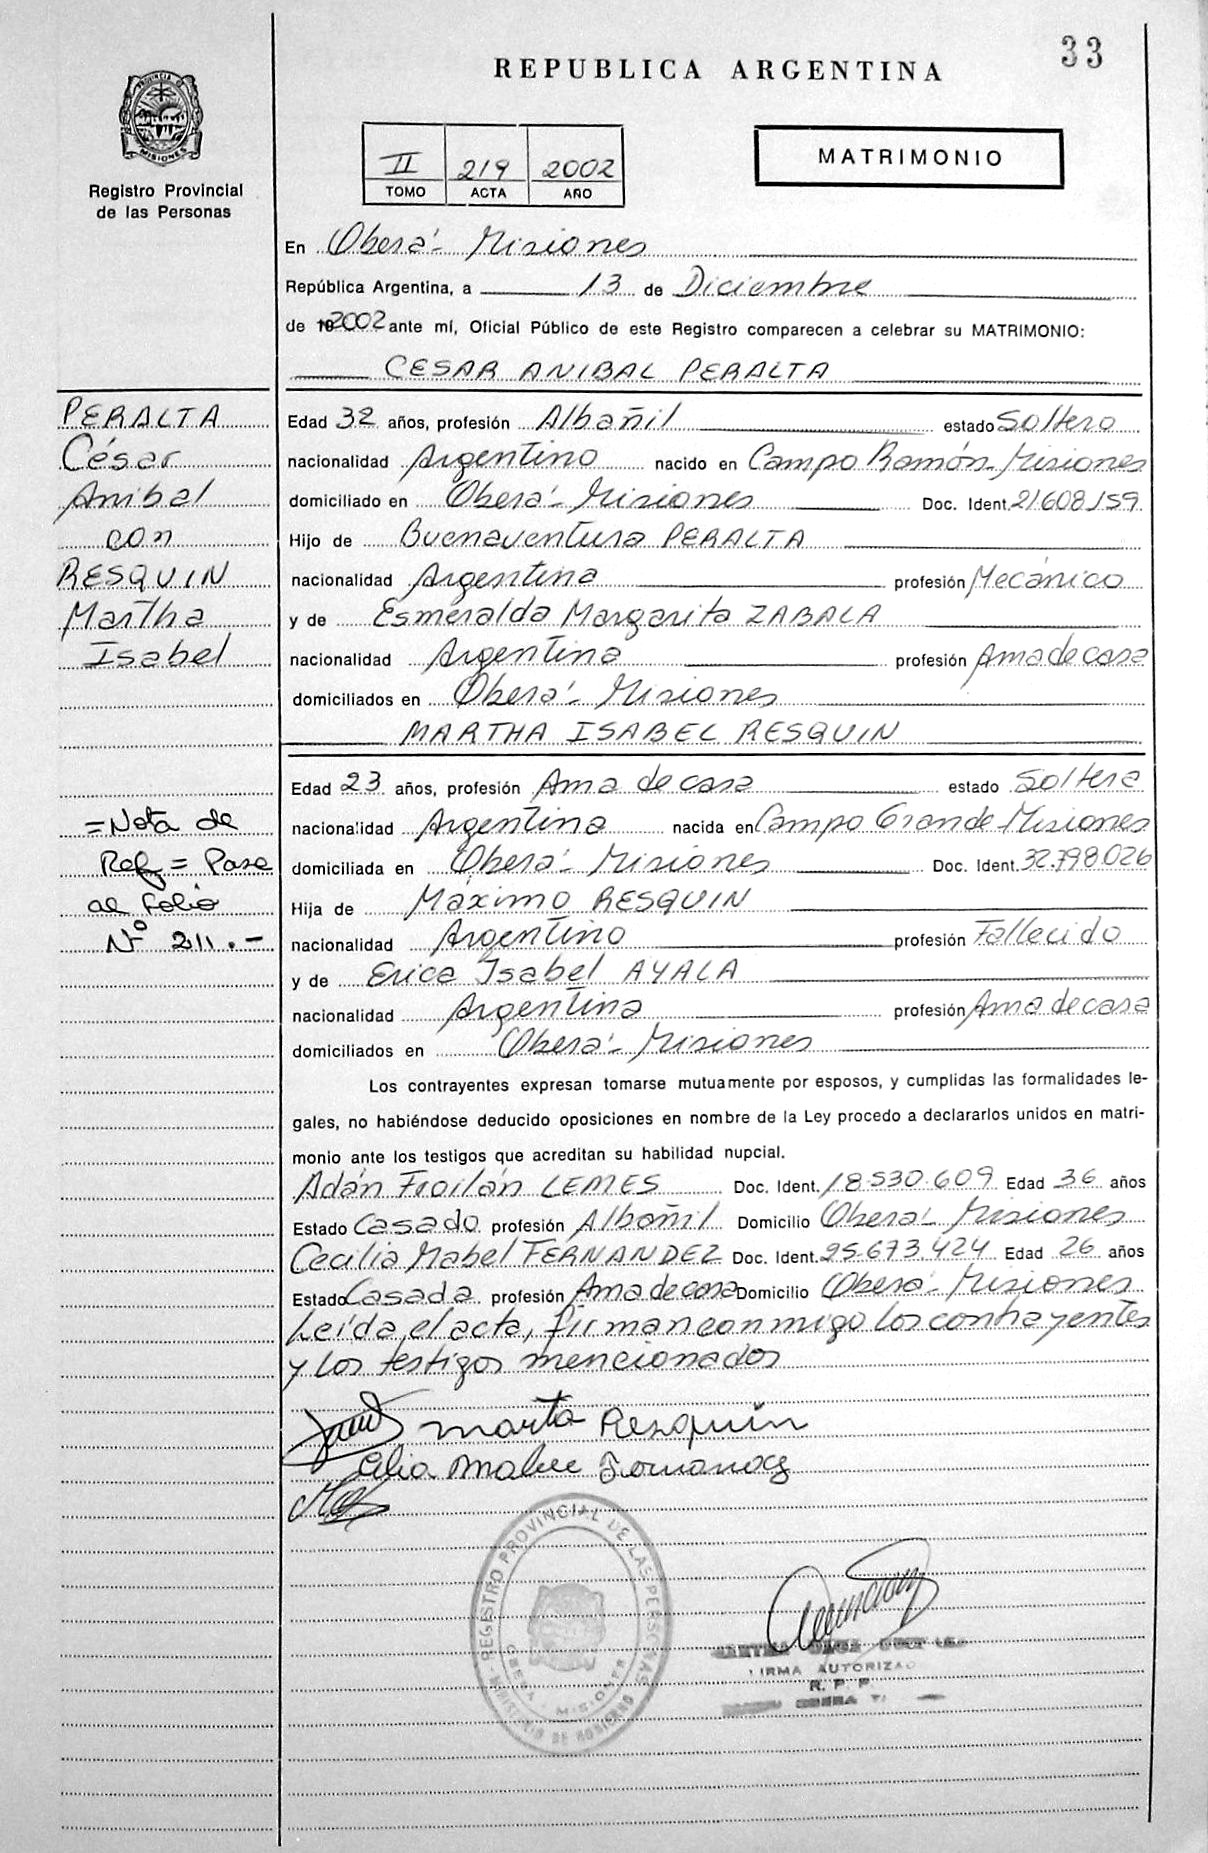 33
REPUBLICA ARGENTINA
PROVINCIA D
MISIONES
Registro Provincial
de las Personas
II 219 2002
TOMO ACTA AÑO
MATRIMONIO
En Oberá - Misiones
República Argentina, a 13 de Diciembre
de 2002 ante mí, Oficial Público de este Registro comparecen a celebrar su MATRIMONIO:
CESAR ANIBAL PERALTA
PERALTA
César
Anibal
con
RESQUIN
Martha
Isabel
Edad 32 años, profesión Albañil estado Soltero
nacionalidad Argentino nacido en Campo Ramón-Misiones
domiciliado en Oberá - Misiones Doc. Ident. 21608159
Hijo de Buenaventura PERALTA
nacionalidad Argentina profesión Mecánico
y de Esmeralda Margarita ZABALA
nacionalidad Argentina profesión Ama de casa
domiciliados en Oberá - Misiones
MARTHA ISABEL RESQUIN
= Nota de
Ref = Pase
al folio
Nº 211.-
Edad 23 años, profesión Ama de casa estado Soltera
nacionalidad Argentina nacida en Campo Grande-Misiones
domiciliada en Oberá - Misiones Doc. Ident. 32.798.026
Hija de Máximo RESQUIN
nacionalidad Argentino profesión Fallecido
y de Erica Isabel AYALA
nacionalidad Argentina profesión Ama de casa
domiciliados en Oberá - Misiones
Los contrayentes expresan tomarse mutuamente por esposos, y cumplidas las formalidades le-
gales, no habiéndose deducido oposiciones en nombre de la Ley procedo a declararlos unidos en matri-
monio ante los testigos que acreditan su habilidad nupcial.
Adán Froilán LEMES Doc. Ident. 18.530.609 Edad 36 años
Estado Casado profesión Albañil Domicilio Oberá - Misiones
Cecilia Mabel FERNANDEZ Doc. Ident. 25.673.424 Edad 26 años
Estado Casada profesión Ama de casa Domicilio Oberá - Misiones
Leída el acta, firman conmigo los contrayentes
y los testigos mencionados
Marta Resquin
REGISTRO PROVINCIAL DE LAS PERSONAS
OBERA - MISIONES
MINISTERIO DE GOBIERNO
FIRMA AUTORIZAD
R. P. P.
OBERA